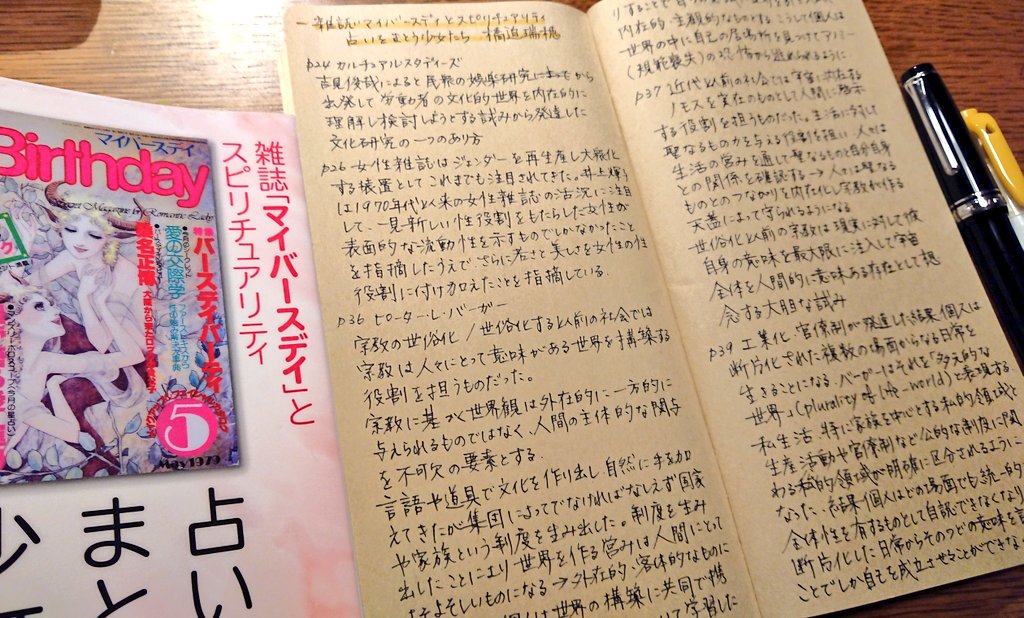 雑誌「マイバースデイ」と
スピリチュアリティ
占い
まと
少
マイバースデイ
Birthday
Secret Magazine for Romantic Lady
特集
バースデイパーティ
愛の交際学
桑名正博
大阪から来たロブ
5
May 1979
一雑誌マイバースデイとスピリチュアリティ
占いをまとう少女たち 橋迫瑞穂
p24 カルチュアルスタディーズ
吉見俊哉によると民衆の娯楽研究にまつから
出発して労働者の文化的世界を内在的に
理解し検討しようとする試みから発達した
文化研究の一つのあり方
p26 女性雑誌はジェンダーを再生産し大衆化
する装置としてこれまでも注目されてきた。井上輝子
は1970年代以来の女性雑誌の活況に注目
して、一見新しい性役割をもたらした女性が
表面的な流動性を示すものでしかなかったこと
を指摘したうえで、さらに若さと美しさを女性の性
役割に付け加えたことを指摘している。
p36 ピーター・L・バーガー
宗教の世俗化/世俗化する以前の社会では
宗教は人々にとって意味がある世界を構築する
役割を担うものだった。
宗教に基づく世界観は外在的に一方的に
与えられるものではなく、人間の主体的な関与
を不可欠の要素とする。
言語や道具で文化を作り出し自然に手を加
えてきたが集団によってでなければなしえず国家
や家族という制度を生み出した。制度を生み
出したことにより世界を作る営みは人間にとって
よそよそしいものになる→外在的、客体的なものに
は世界の構築に共同で携
いて学習した
りすることで
内在的・主観的なものとする。こうして個人は
世界の中に自己の居場所を見つけてアノミー
(規範喪失)の恐怖から逃れられるように
p37 近代以前の社会では宇宙に存在する
ノモスを実在のものとして人間に啓示
する役割を担うものだった。生活に対して
聖なるものが与える役割を担い人々は
生活の営みを通して聖なるものと自分自身
との関係を確認する→人々は聖なる
ものとのつながりを内在化し宗教が作る
天蓋によって守られるようになる
世俗化以前の宗教は環境に対して彼
自身の意味を最大限に注入して宇宙
全体を人間的に意味ある存在として想
念する大胆な試み
p39 工業化、官僚制が発達した結果個人は
断片化された複数の場面からなる日常を
生きることになる。バーガーはそれを「多元的な
世界」(plurality of life-world)と表現する
私生活、特に家族を中心とする私的領域と
生産活動や官僚制など公的な制度に関
わる公的領域が明確に区分されるように
なった。結果個人はどの場面でも統一的な
全体性を有するものとして自認できなくなり
断片化した日常からそのつどの意味を
ことでしか自己を成立させることができな